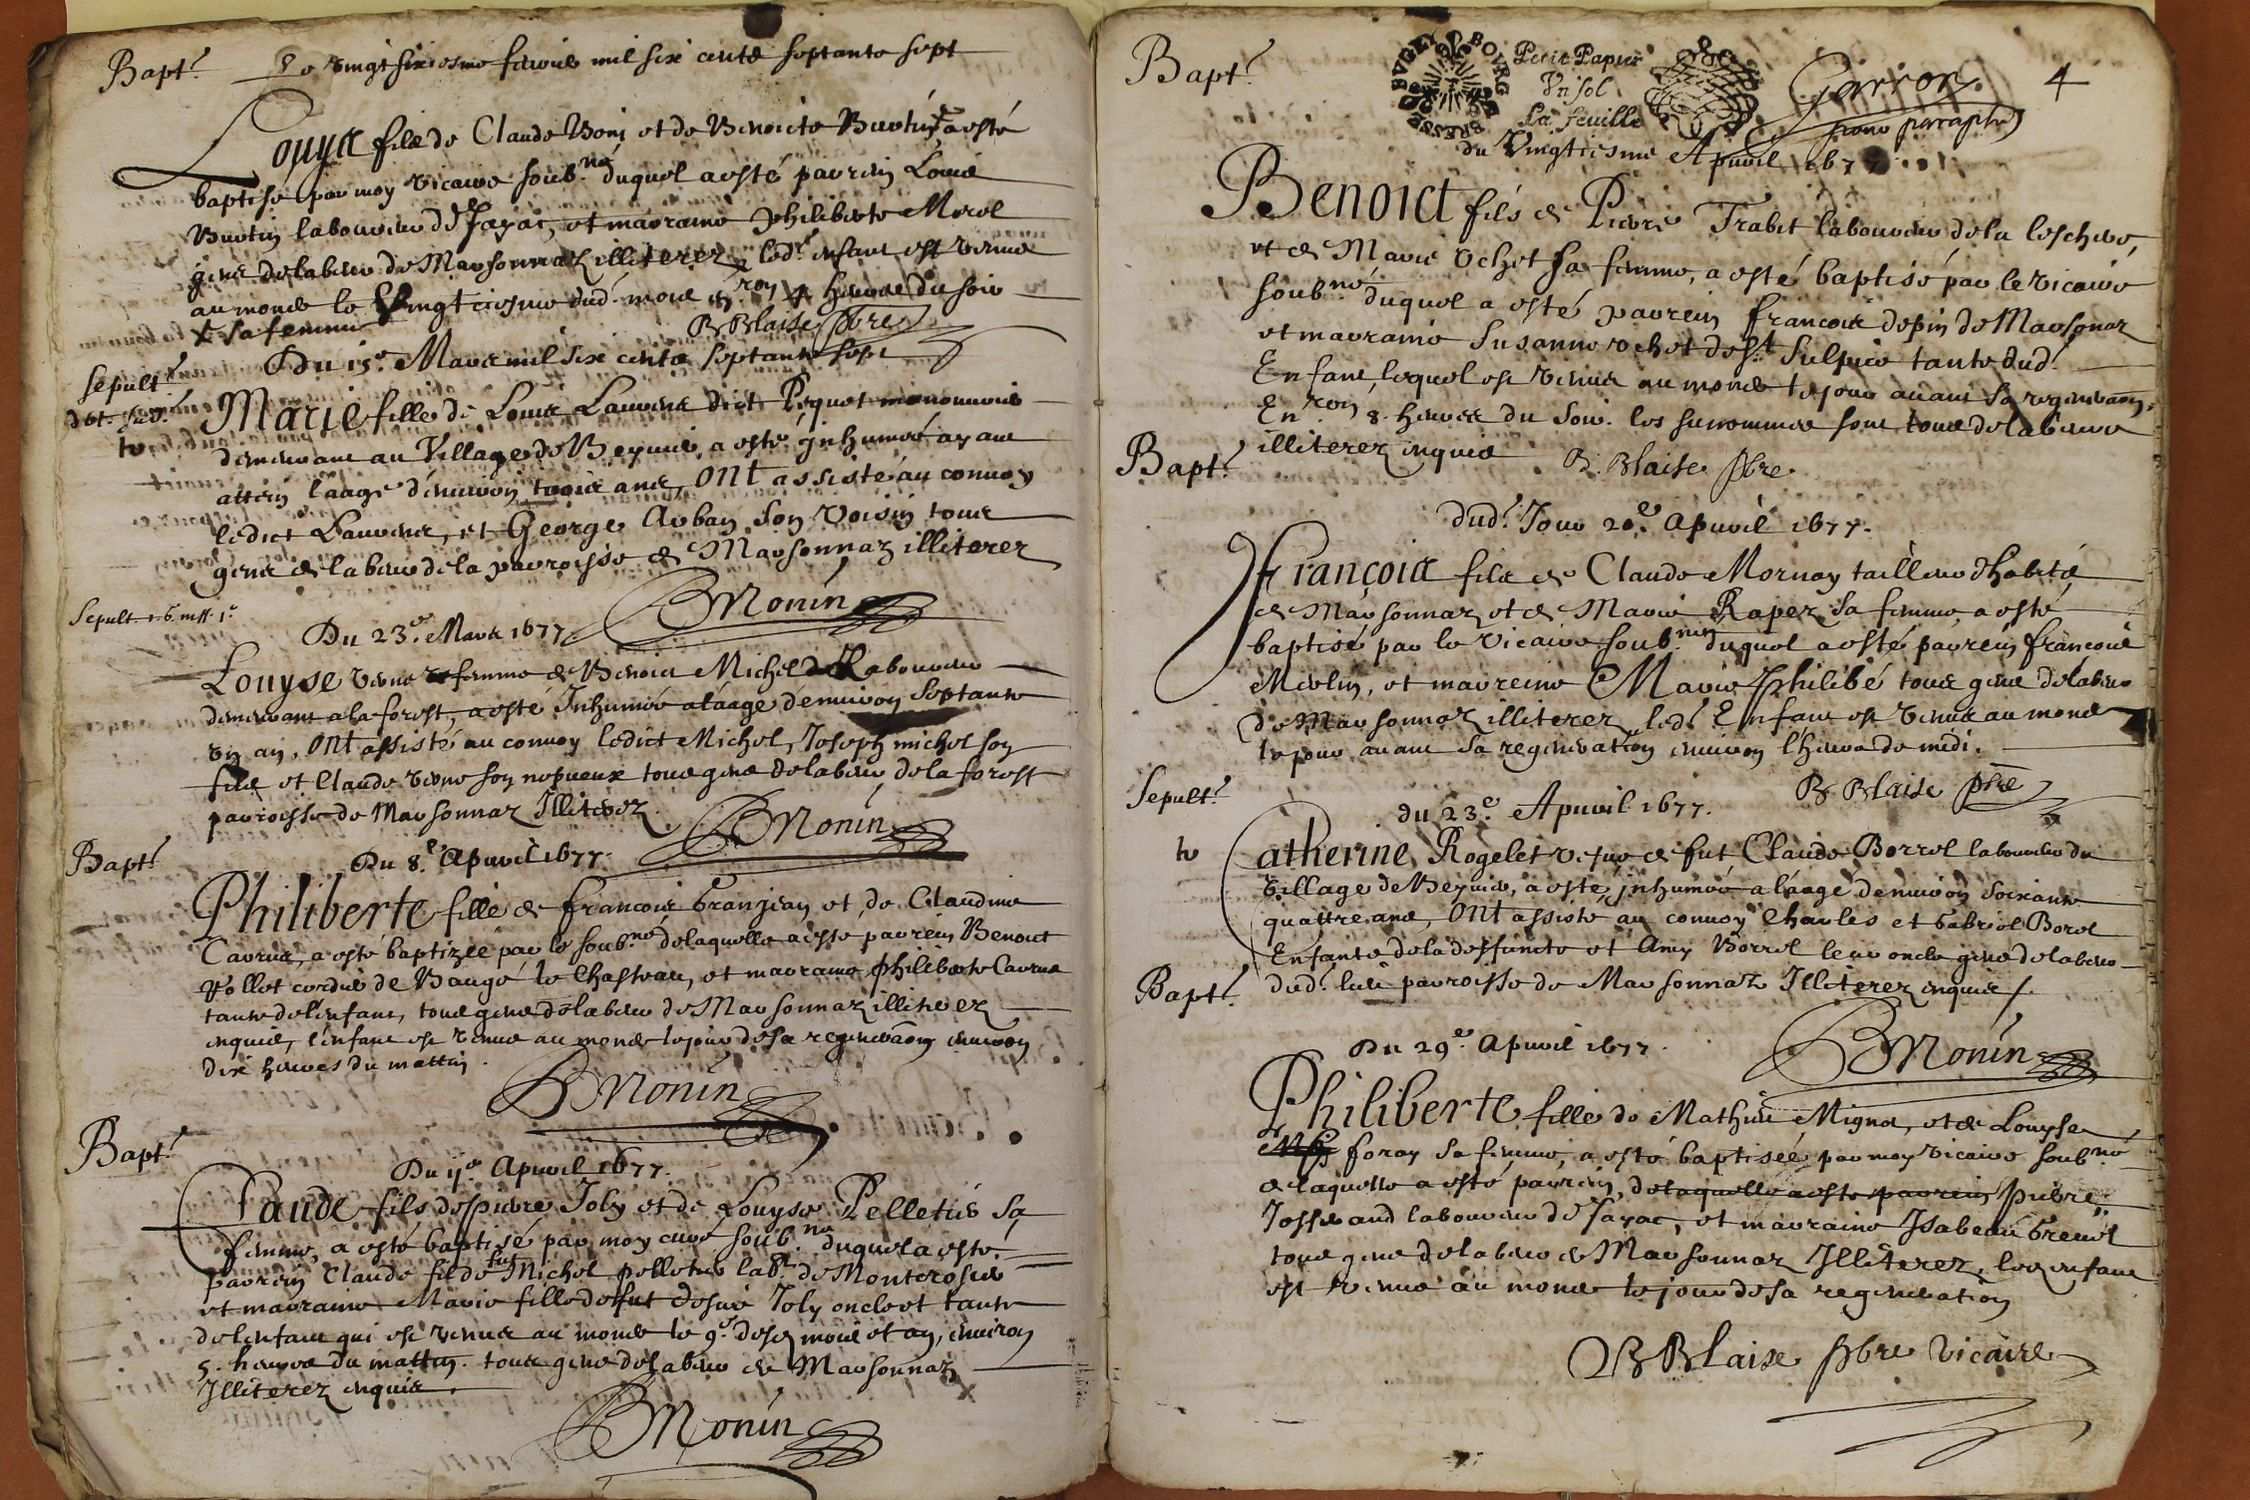 Bapt.
Le vingt sixiesme febvrier mil six cents septante sept
Louys fils de Claude Boni et de Benoicte Burtin x a esté
baptisé par moy vicaire soub.né duquel a esté parrein Louis
Burtin laboureur de Jayac, et marraine Philiberte Morel
gens de labeur de Marsonnaz illiterez, led.t enfant est venu
au monde le vingtiesme dud. mois en.ron 4 heures du soir
x sa femme
B Blaise pbre
Sepult.
Du 15.e Mars mil six cents septante sept
Marie fille de Louis Laurens dict Piquet manouvrier
demeurant au Village de Beyvier, a esté inhumée ayant
attein l'aage d'environ trois ans, ont assisté au convoy
ledict Laurens, et George Arban son voisin tous
gens de labeur de la parroisse de Marsonnaz illiterez
BMonin
Du 23.e Mars 1677.
Louyse verne femme de Benoict Michel laboureur
demeurant a la forest, a esté Inhumée a l'aage d'environ septante
un an, ont assisté au convoy ledict Michel, Joseph michel son
fils et Claude verne son nepveux tous gens de labeur de la forest
parroisse de Marsonnaz Illiterez.
BMonin
Bapt.
Du 8.e Apvril 1677.
Philiberte fille de francois Granjean et de Claudine
Cavrus, a esté baptizée par le soub.né de laquelle a esté parrein Benoict
Vollet cordier de Baugé le Chasteau, et marraine philiberte Cavrus
tante de l'enfant, tous gens de labeur de Marsonnaz illiterez
enquis, l'enfant est venue au monde le jour de sa regeneraon environ
dix heures du mattin.
BMonin
Bapt.
Du 11.e Apvril 1677.
Claude fils de pierre Joly et de Louyse Pelletier sa
femme, a esté baptisé par moy curé soub.né duquel a esté
parrein Claude fils de fut Michel pelletier lab.r de Montcrosier
et marraine Marie fille de fut desiré Joly oncle et tante
de l'enfant qui est venu au monde le 9.e desd mois et an, environ
5. heures du mattin. tous gens de labeur de Marsonnaz
Illiterez enquis.
BMonin
Bapt.
BRESSE BVGEY BOVRG
Petit Papier
Vn sol
La feuille
Garron
4
sans paraphe
du Vingtiesme Apvril 1677
Benoict fils de Pierre Trabet laboureur de la leschere,
et de Marie Vchet sa femme, a esté baptisé par le vicaire
soub.né duquel a esté parrein francois depin de Marsonaz
et marraine Susanne vchet de S.t Sulpice tante dud.
Enfant, lequel est venu au monde le jour avant sa regeneraon,
En.ron 8. heures du soir. les surnommes sont tous de labeur
illiterez enquis
B. Blaise pbre.
Bapt.
dud. Jour 20.e Apvril 1677.
François fils de Claude Mornay tailleur d'habits
de Marsonnaz et de Marie Raper sa femme, a esté
baptisé par le vicaire soub.né duquel a esté parrein francois
Merlin, et marreine Marie Philibé tous gens de labeur
de Marsonnaz illiterez, led. Enfant est venu au monde
le jour avant sa regeneration environ l'heure de midi.
B Blaise pbre
Sepult.
du 23.e Apvril 1677.
Catherine Rogelet vefve de fut Claude Borrel laboureur du
village de Beyvier, a esté inhumée a l'aage d'environ soixante
quattre ans, ont assisté au convoy Charles et Gabriel Borel
Enfants de la deffuncte et Amy Borrel leur oncle gens de labeur
dud. lieu parroisse de Marsonnaz Illiterez enquis /.
BMonin
Bapt.
Du 29.e Apvril 1677.
Philiberte fille de Mathieu Mignot, et de Louyse
foray sa femme, a esté baptisée par moy vicaire soub.né
de laquelle a esté parrein, de laquelle a esté parrein pierre
Josserand laboureur de Jayac, et marraine Isabeau Grevet
tous gens de labeur de Marsonnaz Illiterez, led enfant
est venue au monde le jour de sa regeneration
B Blaise pbre vicaire